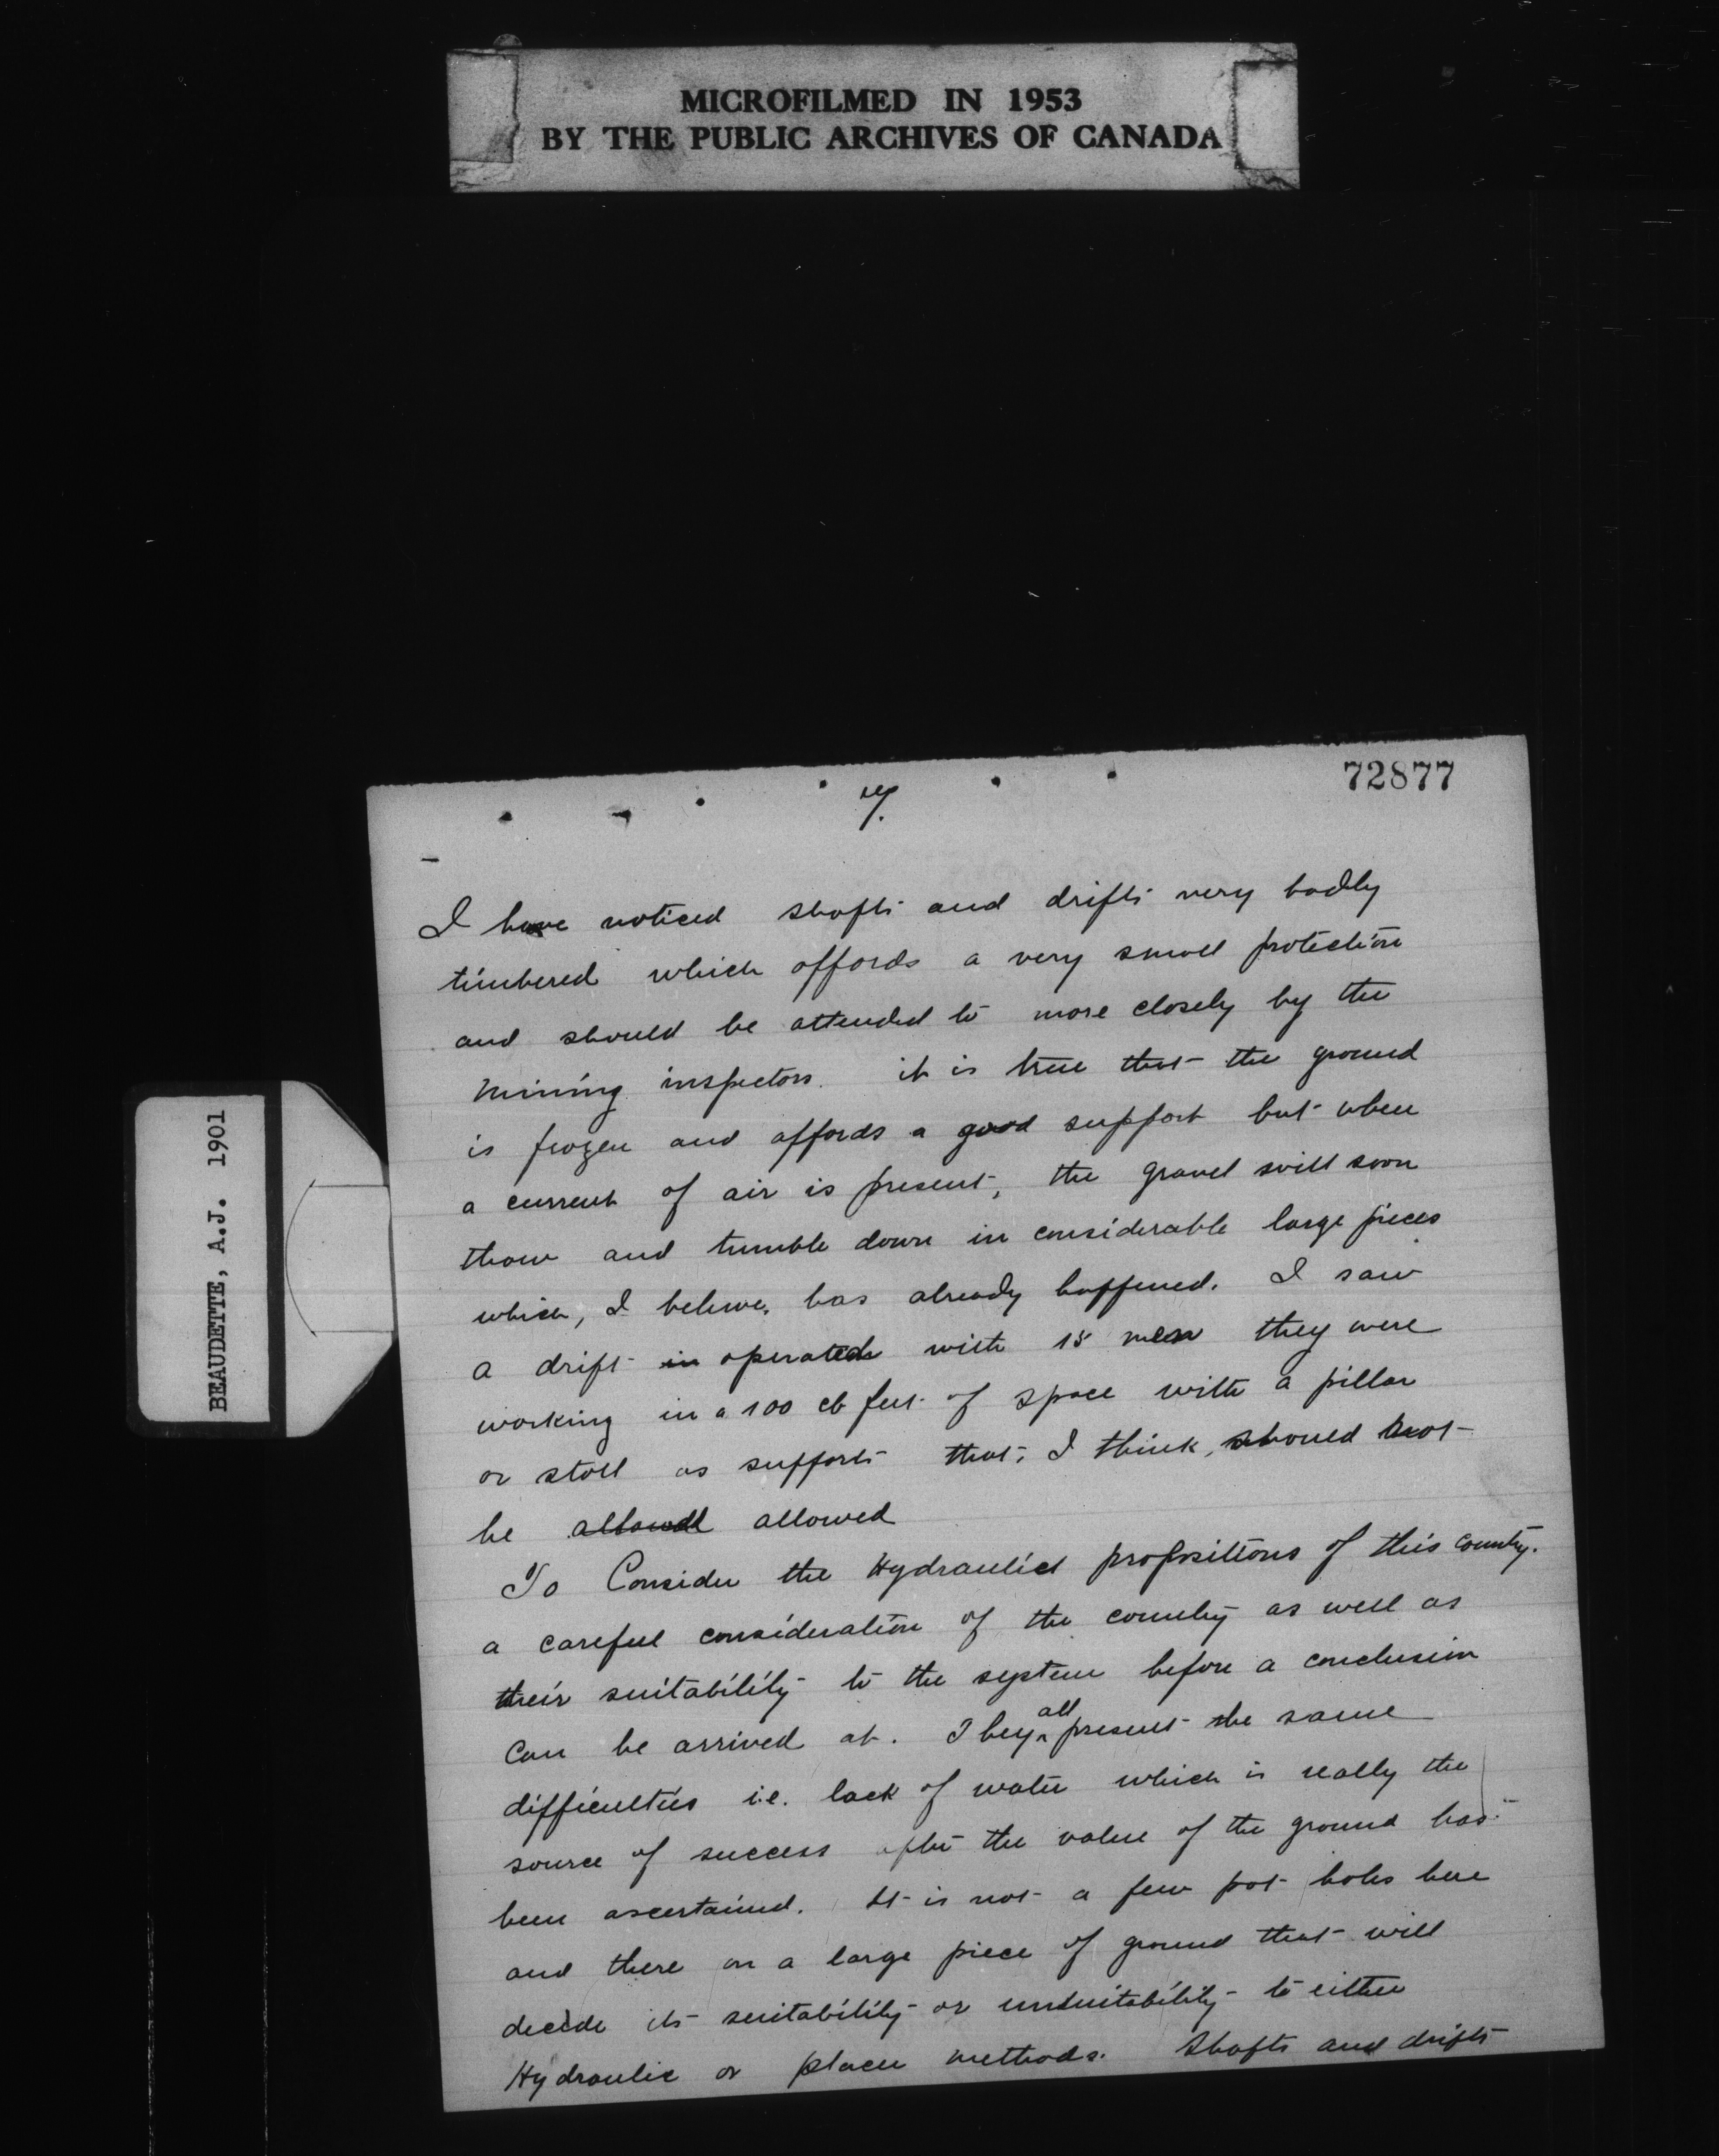 MICROFILMED IN 1953
BY THE PUBLIC ARCHIVES OF CANADA
72877
7.
I have noticed shafts and drifts very badly
timbered which affords a very small protection
and should be attended to more closely by the
mining inspectors. it is true that the ground
is frozen and affords a good support but when
a current of air is present, the gravel will soon
thaw and tumble down in considerable large pieces
which, I believe, has already happened. I saw
a drift in operated with 15 men they were
working in a 100 cb feet of space with a pillar
or stoll as support that, I think, should not
be allowd allowed
To Consider the Hydraulict propositions of this country.
a careful consideration of the country as well as
their suitability to the system before a conclusion
can be arrived at. They all present the same
difficulties i.e. lack of water which is really the
source of success after the value of the ground has
been ascertained. It is not a few pot holes here
and there on a large piece of ground that will
decide its suitability or unsuitability to either
Hydraulic or placer methods. Shafts and drifts
BEAUDETTE, A.J. 1901